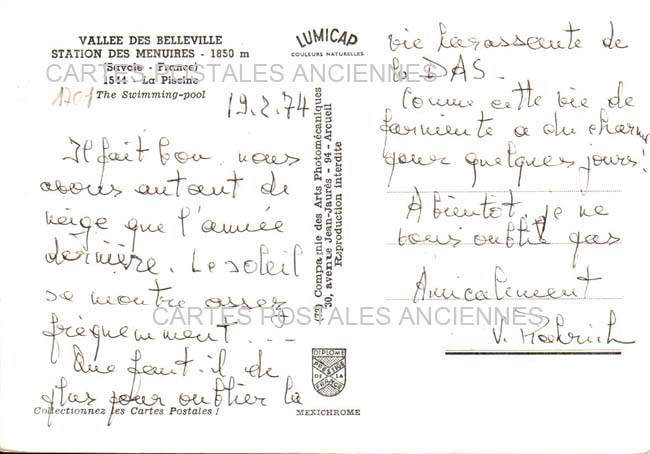 VALLEE DES BELLEVILLE
STATION DES MENUIRES - 1850 m
(Savoie - France)
1544 - La Piscine
The Swimming-pool
1701
19.2.74
Il fait bon, nous
avons autant de
neige que l'année
dernière. Le soleil
se montre assez
fréquemment...
Que faut-il de
plus pour oublier la
Collectionnez les Cartes Postales !
LUMICAP
COULEURS NATURELLES
(73) Compagnie des Arts Photomécaniques
30, avenue Jean-Jaurès - 94 - Arcueil
Reproduction interdite
DIPLOME
PRESTIGE
DE LA
FRANCE
MEXICHROME
vie harassante de
la DAS.
Comme cette vie de
farniente a du charme
pour quelques jours!
A bientôt, je ne
vous oublie pas
Amicalement
V.
CARTES POSTALES ANCIENNES
CARTES POSTALES ANCIENNES